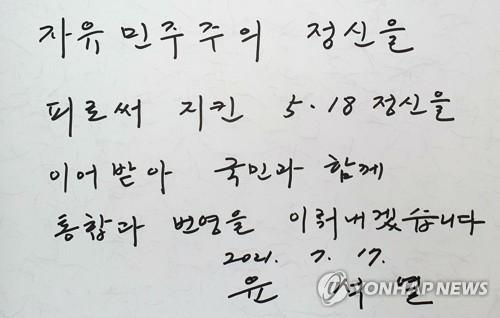 자유민주주의 정신을
피로써 지킨 5·18 정신을
이어받아 국민과 함께
통합과 번영을 이뤄내겠습니다
2021. 7. 17.
윤 석 열
YONHAPNEWS